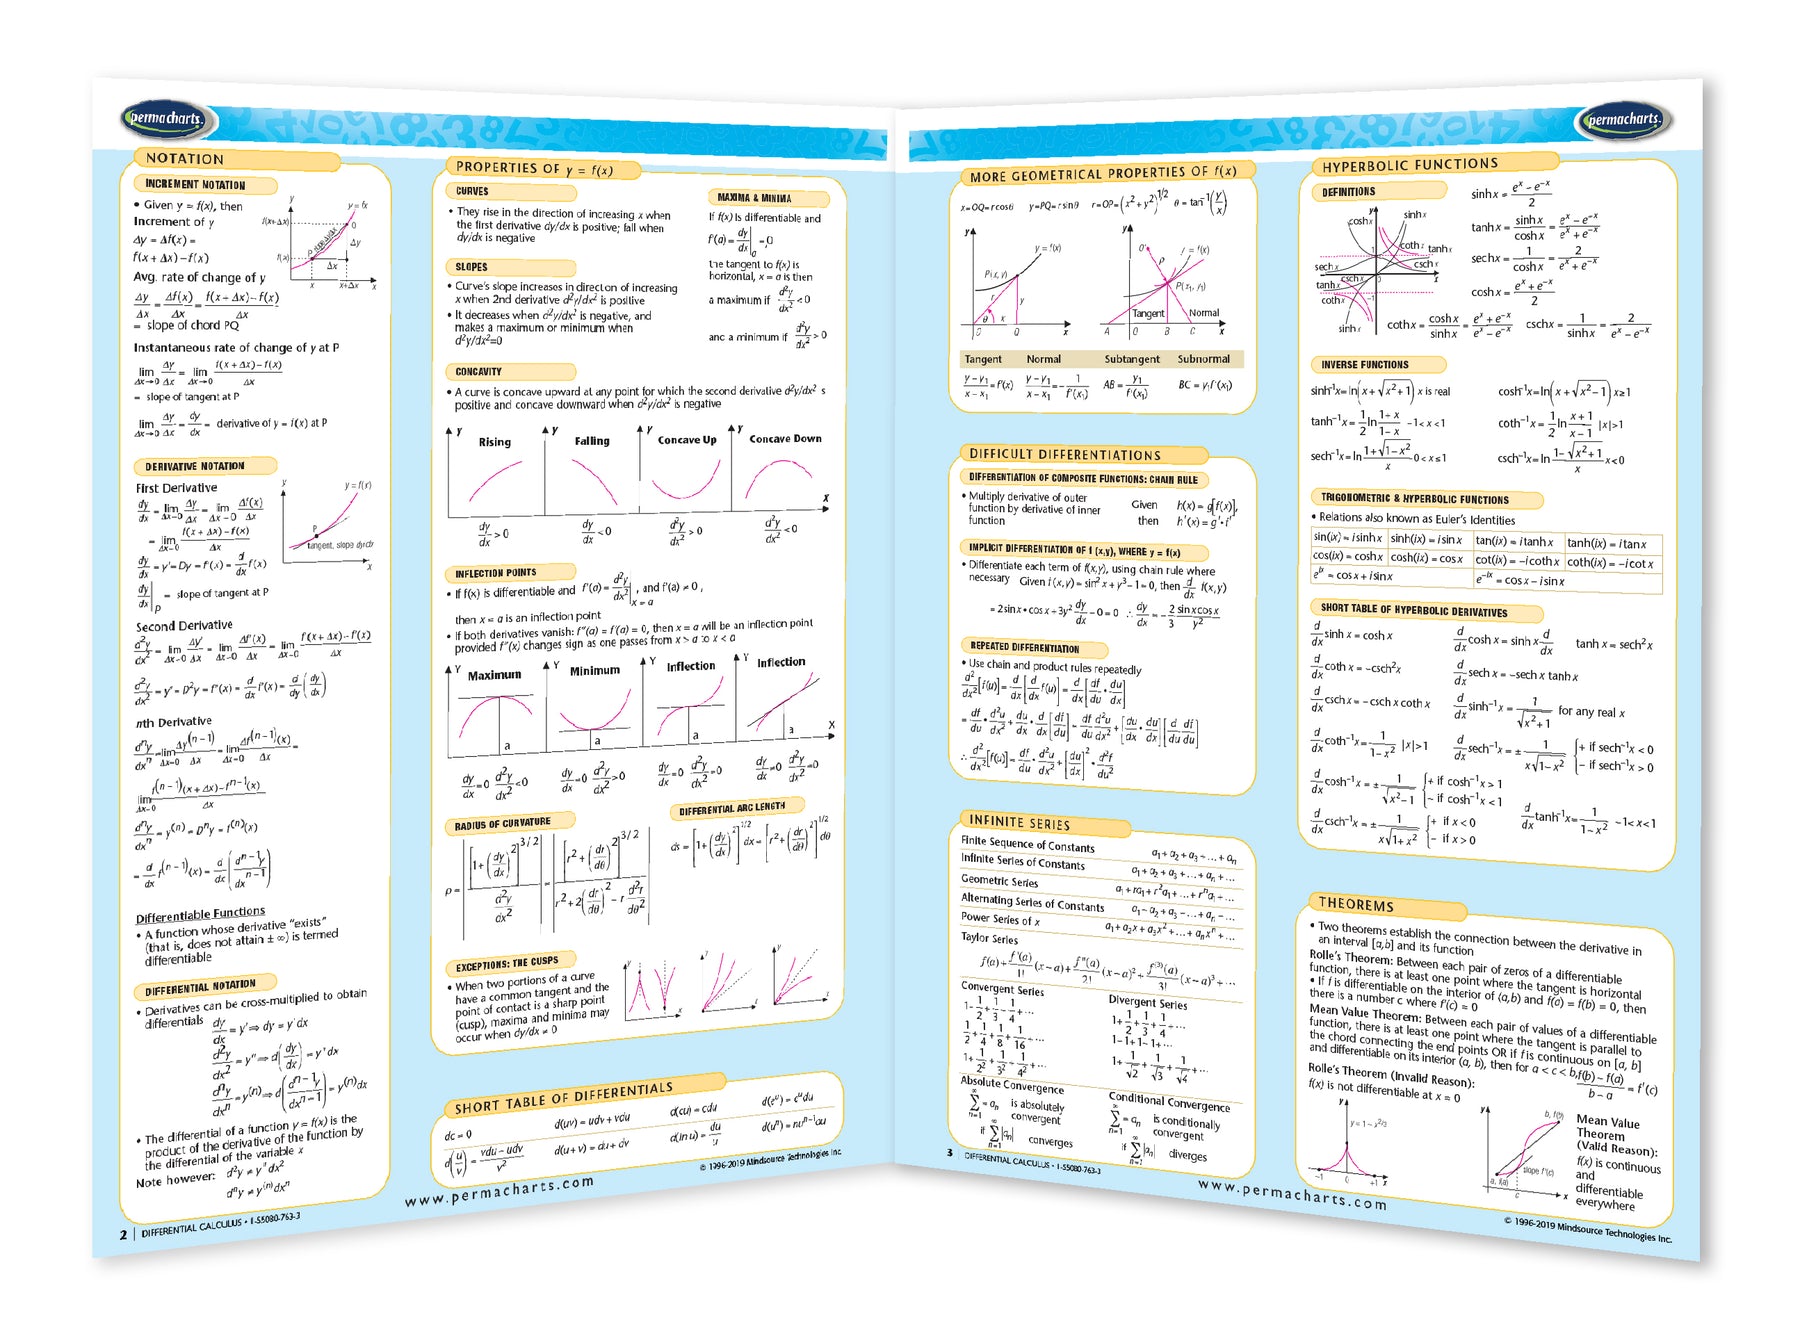 permacharts.
NOTATION
INCREMENT NOTATION
• Given y = f(x), then
Increment of y
Δy = Δf(x) =
f(x + Δx) – f(x)
Avg. rate of change of y
Δy/Δx = Δf(x)/Δx = f(x + Δx) – f(x)/Δx
= slope of chord PQ
Instantaneous rate of change of y at P
lim Δx→0 Δy/Δx = lim Δx→0 f(x + Δx) – f(x)/Δx
= slope of tangent at P
lim Δx→0 Δy/Δx = dy/dx = derivative of y = f(x) at P
DERIVATIVE NOTATION
First Derivative
= slope of tangent at P
Second Derivative
nth Derivative
Differentiable Functions
• A function whose derivative "exists"
(that is, does not attain ± ∞) is termed
differentiable
DIFFERENTIAL NOTATION
• Derivatives can be cross-multiplied to obtain
differentials
dy/dx = y' ⇒ dy = y'dx
• The differential of a function y = f(x) is the
product of the derivative of the function by
the differential of the variable x
Note however: d²y ≠ y''dx²
dⁿy ≠ y⁽ⁿ⁾dxⁿ
2 | DIFFERENTIAL CALCULUS • 1-55080-763-3
PROPERTIES OF y = f(x)
CURVES
• They rise in the direction of increasing x when
the first derivative dy/dx is positive; fall when
dy/dx is negative
SLOPES
• Curve's slope increases in direction of increasing
x when 2nd derivative d²y/dx² is positive
• It decreases when d²y/dx² is negative, and
makes a maximum or minimum when
d²y/dx²=0
MAXIMA & MINIMA
If f(x) is differentiable and
the tangent to f(x) is
horizontal, x = a is then
a maximum if d²y/dx² < 0
and a minimum if d²y/dx² > 0
CONCAVITY
• A curve is concave upward at any point for which the second derivative d²y/dx² s
positive and concave downward when d²y/dx² is negative
Rising Falling Concave Up Concave Down
dy/dx > 0 dy/dx < 0 d²y/dx² > 0 d²y/dx² < 0
INFLECTION POINTS
• If f(x) is differentiable and f'(a) = d²y/dx² | x = a, and f'(a) ≠ 0,
then x = a is an inflection point
• If both derivatives vanish: f''(a) = f'(a) = 0, then x = a will be an inflection point
provided f''(x) changes sign as one passes from x > a to x < a
Maximum Minimum Inflection Inflection
dy/dx = 0 d²y/dx² < 0 dy/dx = 0 d²y/dx² > 0 dy/dx = 0 d²y/dx² = 0 dy/dx ≠ 0 d²y/dx² = 0
RADIUS OF CURVATURE
DIFFERENTIAL ARC LENGTH
EXCEPTIONS: THE CUSPS
• When two portions of a curve
have a common tangent and the
point of contact is a sharp point
(cusp), maxima and minima may
occur when dy/dx ≠ 0
SHORT TABLE OF DIFFERENTIALS
dc = 0 d(uv) = udv + vdu d(cu) = cdu d(eᵘ) = eᵘdu
d(u/v) = vdu – udv/v² d(u + v) = du + dv d(ln u) = du/u d(uⁿ) = nuⁿ⁻¹du
© 1996-2019 Mindsource Technologies Inc.
www.permacharts.com
permacharts.
MORE GEOMETRICAL PROPERTIES OF f(x)
x=OQ=r cosθ y=PQ=r sinθ r=OP=(x² + y²)^1/2 θ = tan⁻¹(y/x)
Tangent Normal
Tangent Normal Subtangent Subnormal
y – y₁/x – x₁ = f'(x) y – y₁/x – x₁ = – 1/f'(x₁) AB = y₁/f'(x₁) BC = y₁f'(x₁)
DIFFICULT DIFFERENTIATIONS
DIFFERENTIATION OF COMPOSITE FUNCTIONS: CHAIN RULE
• Multiply derivative of outer
function by derivative of inner
function
Given h(x) = g[f(x)],
then h'(x) = g' • f'
IMPLICIT DIFFERENTIATION OF f (x,y), WHERE y = f(x)
• Differentiate each term of f(x,y), using chain rule where
necessary Given f(x,y) = sin²x + y³ – 1 = 0, then d/dx f(x,y)
= 2sinx • cosx + 3y² dy/dx – 0 = 0 ∴ dy/dx = – 2/3 sinxcosx/y²
REPEATED DIFFERENTIATION
• Use chain and product rules repeatedly
INFINITE SERIES
Finite Sequence of Constants a₁ + a₂ + a₃ + ... + aₙ
Infinite Series of Constants a₁ + a₂ + a₃ + ... + aₙ + ...
Geometric Series a₁ + ra₁ + r²a₁ + ... + rⁿa₁ + ...
Alternating Series of Constants a₁ – a₂ + a₃ – ... + aₙ – ...
Power Series of x a₁ + a₂x + a₃x² + ... + aₙxⁿ + ...
Taylor Series
f(a) + f'(a)/1! (x – a) + f''(a)/2! (x – a)² + f⁽³⁾(a)/3! (x – a)³ + ...
Convergent Series Divergent Series
1 – 1/2 + 1/3 – 1/4 + ... 1 + 1/2 + 1/3 + 1/4 + ...
1/2 + 1/4 + 1/8 + 1/16 + ... 1 – 1 + 1 – 1 + ...
1 + 1/2² + 1/3² + 1/4² + ... 1 + 1/√2 + 1/√3 + 1/√4 + ...
Absolute Convergence Conditional Convergence
is absolutely convergent is conditionally convergent
converges diverges
3 | DIFFERENTIAL CALCULUS • 1-55080-763-3
HYPERBOLIC FUNCTIONS
DEFINITIONS
sinh x = eˣ – e⁻ˣ/2
tanh x = sinh x/cosh x = eˣ – e⁻ˣ/eˣ + e⁻ˣ
sech x = 1/cosh x = 2/eˣ + e⁻ˣ
cosh x = eˣ + e⁻ˣ/2
coth x = cosh x/sinh x = eˣ + e⁻ˣ/eˣ – e⁻ˣ csch x = 1/sinh x = 2/eˣ – e⁻ˣ
INVERSE FUNCTIONS
sinh⁻¹x = ln(x + √x² + 1) x is real cosh⁻¹x = ln(x + √x² – 1) x ≥ 1
tanh⁻¹x = 1/2 ln 1 + x/1 – x –1 < x < 1 coth⁻¹x = 1/2 ln x + 1/x – 1 |x| > 1
sech⁻¹x = ln 1 + √1 – x²/x 0 < x ≤ 1 csch⁻¹x = ln 1 – √x² + 1/x x < 0
TRIGONOMETRIC & HYPERBOLIC FUNCTIONS
• Relations also known as Euler's Identities
sin(ix) = i sinh x sinh(ix) = i sin x tan(ix) = i tanh x tanh(ix) = i tan x
cos(ix) = cosh x cosh(ix) = cos x cot(ix) = –i coth x coth(ix) = –i cot x
eⁱˣ = cos x + i sin x e⁻ⁱˣ = cos x – i sin x
SHORT TABLE OF HYPERBOLIC DERIVATIVES
d/dx sinh x = cosh x d/dx cosh x = sinh x d/dx tanh x = sech²x
d/dx coth x = –csch²x d/dx sech x = –sech x tanh x
d/dx csch x = –csch x coth x d/dx sinh⁻¹x = 1/√x² + 1 for any real x
d/dx coth⁻¹x = 1/1 – x² |x| > 1 d/dx sech⁻¹x = ± 1/x√1 – x² {+ if sech⁻¹x < 0 – if sech⁻¹x > 0
d/dx cosh⁻¹x = ± 1/√x² – 1 {+ if cosh⁻¹x > 1 – if cosh⁻¹x < 1
d/dx csch⁻¹x = ± 1/x√1 + x² {+ if x < 0 – if x > 0 d/dx tanh⁻¹x = 1/1 – x² –1 < x < 1
THEOREMS
• Two theorems establish the connection between the derivative in
an interval [a,b] and its function
Rolle's Theorem: Between each pair of zeros of a differentiable
function, there is at least one point where the tangent is horizontal
• If f is differentiable on the interior of (a,b) and f(a) = f(b) = 0, then
there is a number c where f'(c) = 0
Mean Value Theorem: Between each pair of values of a differentiable
function, there is at least one point where the tangent is parallel to
the chord connecting the end points OR if f is continuous on [a, b]
and differentiable on its interior (a, b), then for a < c < b, f(b) – f(a)/b – a = f'(c)
Rolle's Theorem (Invalid Reason):
f(x) is not differentiable at x = 0
Mean Value
Theorem
(Valid Reason):
f(x) is continuous
and
differentiable
everywhere
www.permacharts.com
© 1996-2019 Mindsource Technologies Inc.